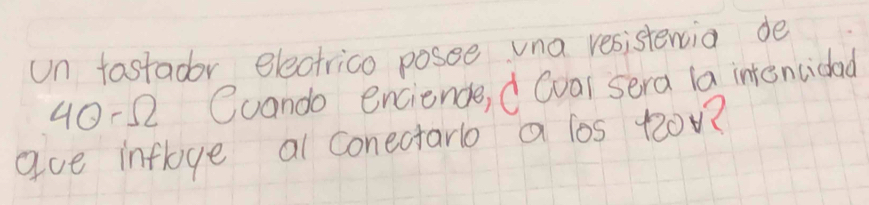 un tostador electrico posee una resistencia de
40-Ω Cuando enciende, ¿ Cual sera la intencidad
que influye al conectarlo a los 120v?